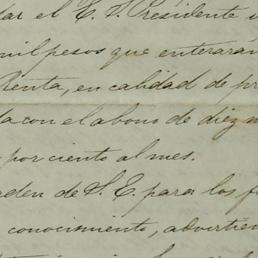 dar el E. S. Presidente
mil pesos que enteraran
Renta, en calidad de pr
da con el abono de diez m
por ciento al mes.
rden de S. E. para los f
conocimiento, advirtien